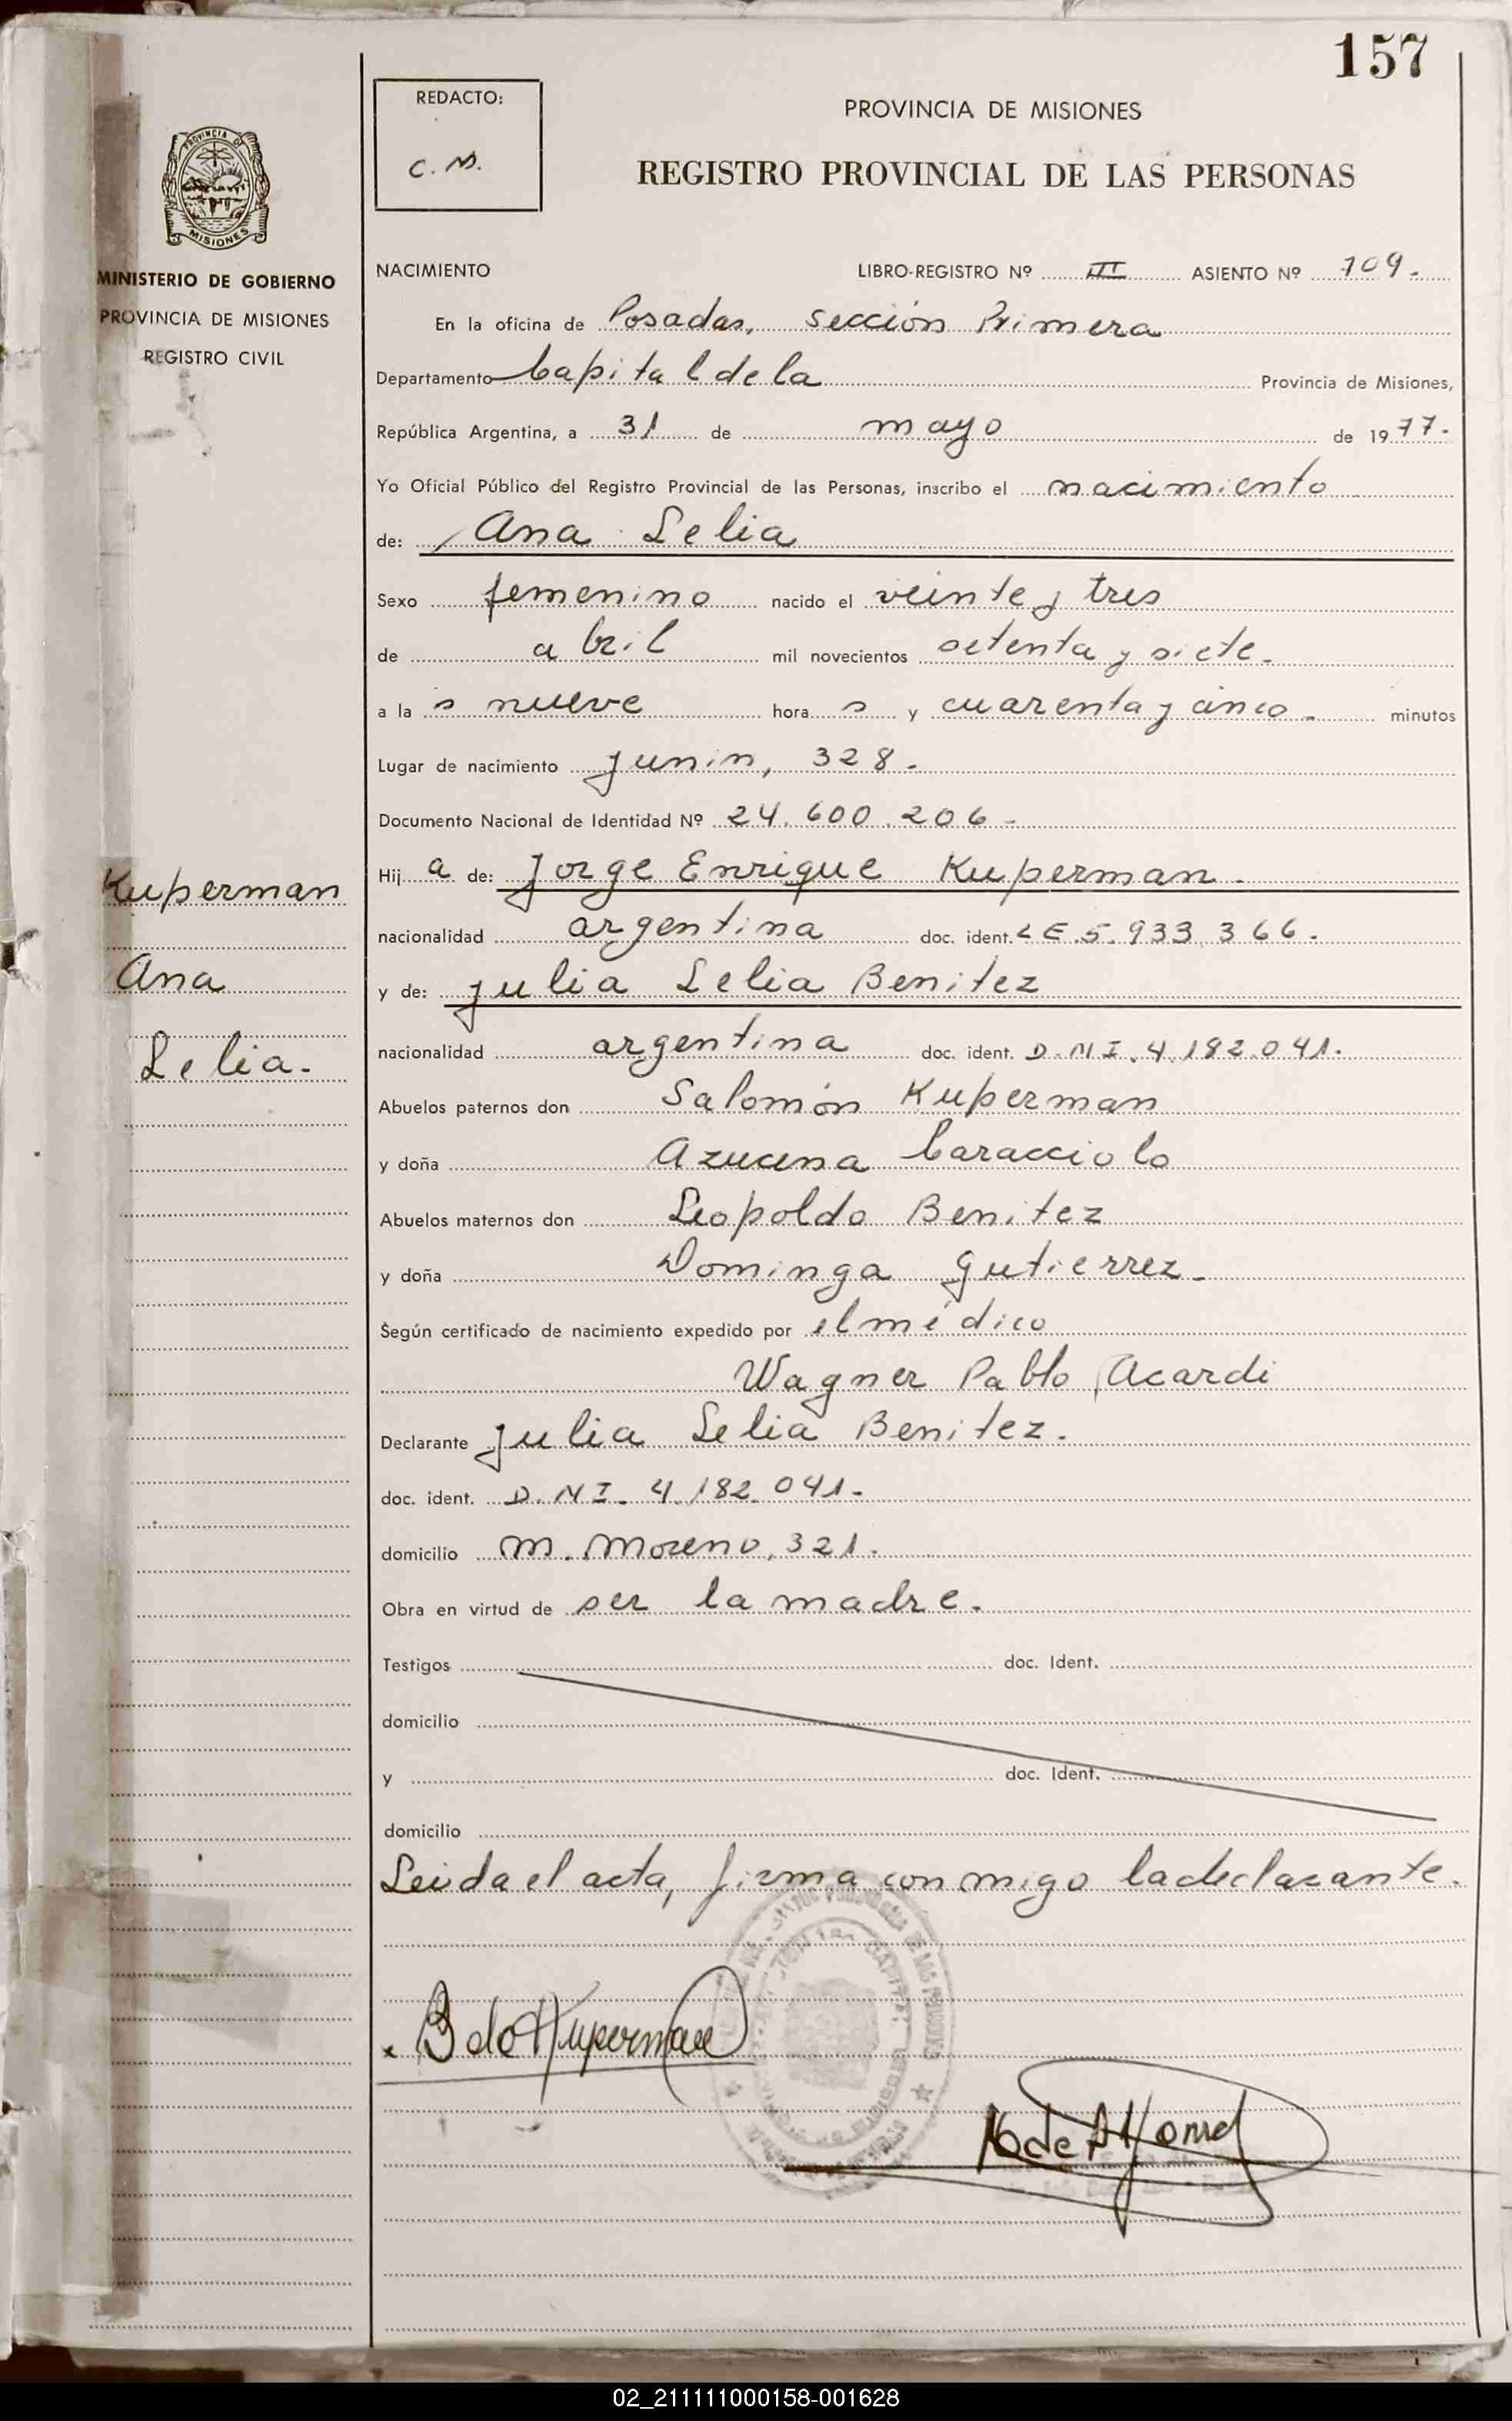 157
REDACTO:
C. M.
PROVINCIA DE MISIONES
REGISTRO PROVINCIAL DE LAS PERSONAS
PROVINCIA DE
MISIONES
MINISTERIO DE GOBIERNO
PROVINCIA DE MISIONES
REGISTRO CIVIL
NACIMIENTO LIBRO-REGISTRO Nº III ASIENTO Nº 709.
En la oficina de Posadas, sección Primera
Departamento Capital de la Provincia de Misiones,
República Argentina, a 31 de mayo de 1977.
Yo Oficial Público del Registro Provincial de las Personas, inscribo el nacimiento
de: Ana Lelia
Sexo femenino nacido el veinte y tres
de abril mil novecientos setenta y siete.
a la s nueve hora s y cuarenta y cinco. minutos
Lugar de nacimiento Junin, 328.
Documento Nacional de Identidad Nº 24.600.206.
Hij a de: Jorge Enrique Kuperman.
nacionalidad argentina doc. ident. LE.5.933.366.
y de: Julia Lelia Benitez
nacionalidad argentina doc. ident. D.N I.4.182.041.
Abuelos paternos don Salomón Kuperman
y doña Azucena Caracciolo
Abuelos maternos don Leopoldo Benitez
y doña Dominga Gutierrez.
Según certificado de nacimiento expedido por el médico
Wagner Pablo Acardi
Declarante Julia Lelia Benitez.
doc. ident. D.N I. 4.182.041.
domicilio M. Moreno, 321.
Obra en virtud de ser la madre.
Testigos doc. Ident.
domicilio
y doc. Ident.
domicilio
Leida el acta, firma conmigo la declarante.
Kuperman
Ana
Lelia.
B de Kuperman
02_211111000158-001628